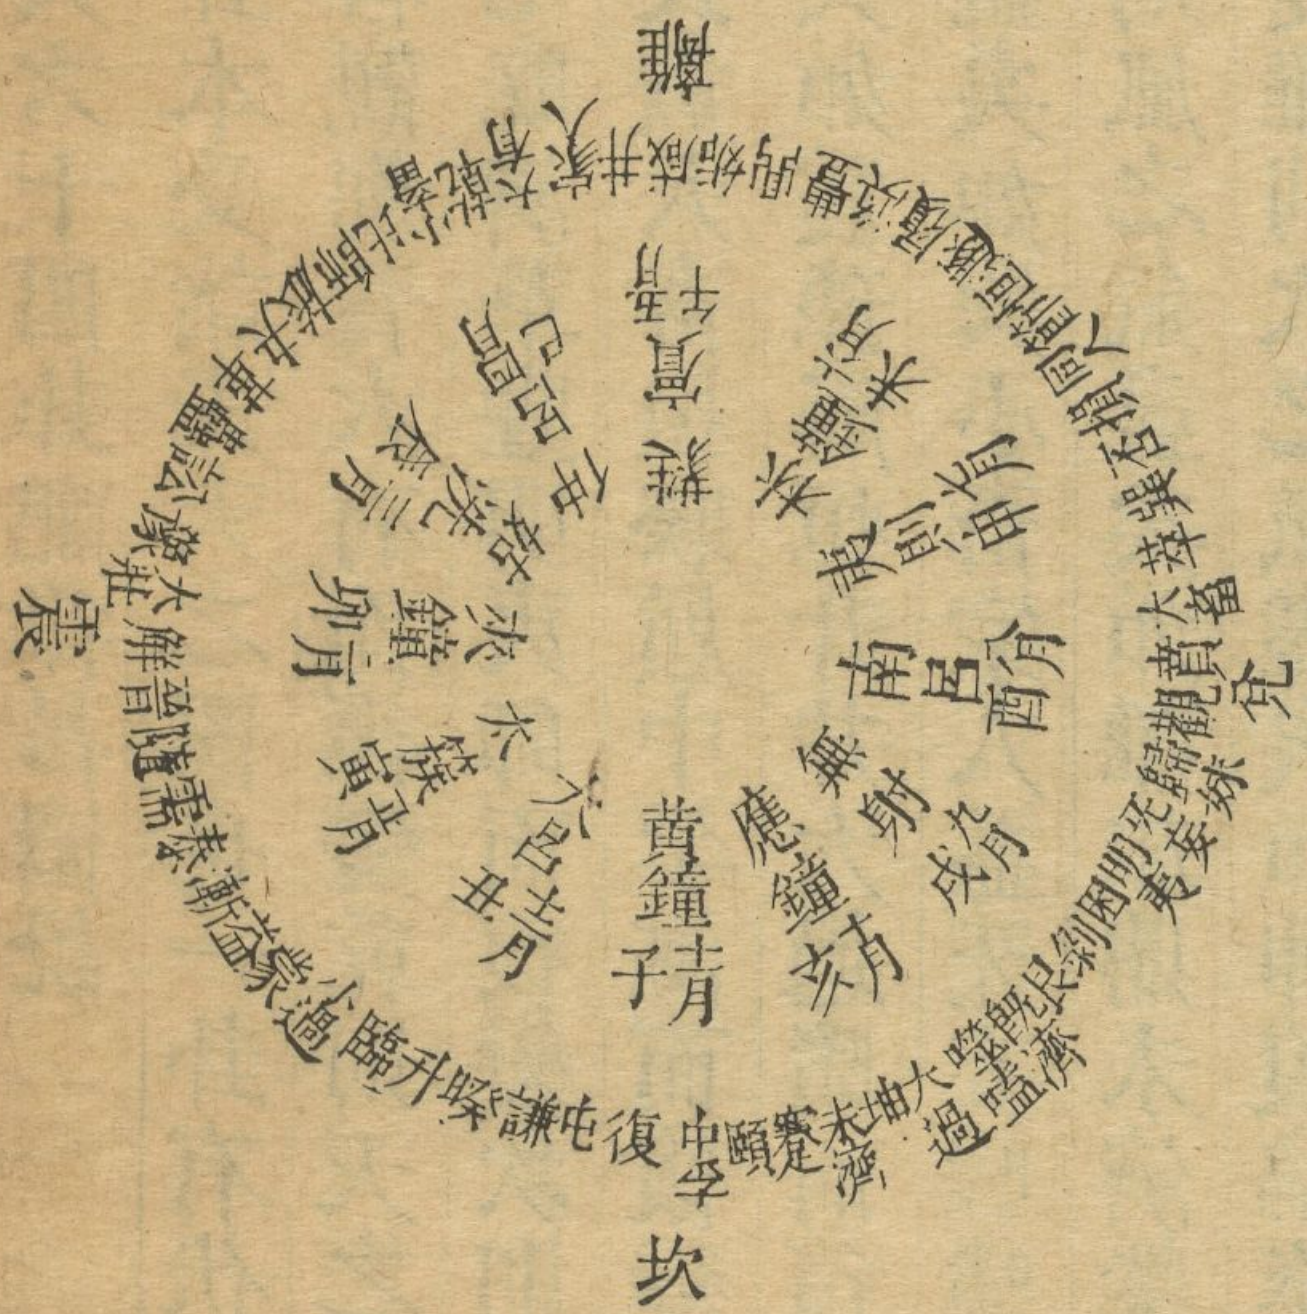 離
震
坎
兌
中孚
復
屯
謙
睽
升
臨
小過
蒙
益
漸
泰
需
隨
晉
解
大壯
豫
訟
蠱
革
夬
旅
師
比
小畜
乾
大有
家人
井
咸
姤
鼎
豐
渙
履
遯
恒
節
同人
損
否
巽
萃
大畜
賁
觀
歸妹
无妄
明夷
困
剝
艮
既濟
噬嗑
大過
坤
未濟
蹇
頤
黃鐘
十一月子
大呂
十二月丑
太簇
正月寅
夾鐘
二月卯
姑洗
三月辰
仲呂
四月巳
蕤賓
五月午
林鐘
六月未
夷則
七月申
南呂
八月酉
無射
九月戌
應鐘
十月亥